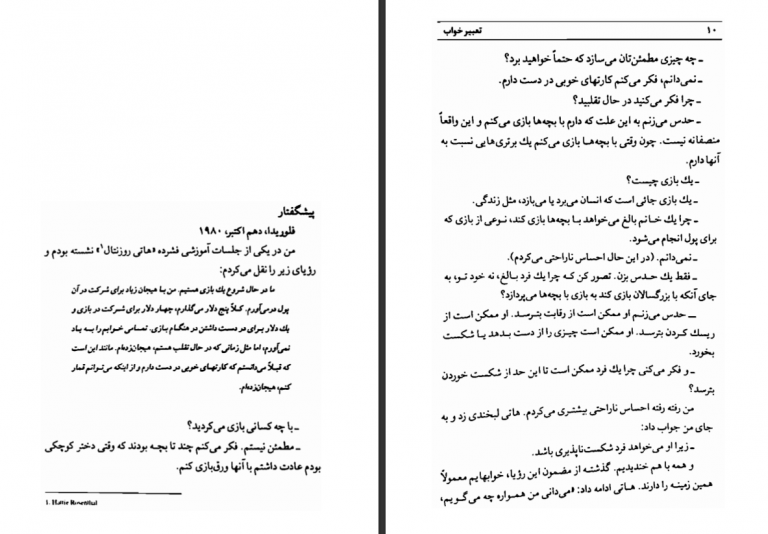 پیشگفتار
فلوریدا، دهم اکتبر، ۱۹۸۰
من در یکی از جلسات آموزشی فشرده «هاتی روزنتال۱» نشسته بودم و
رؤیای زیر را نقل می‌کردم:
ما در حال شروع یك بازی هستیم. من بـا هیجان زیاد برای شرکت در آن
پول درمی‌آورم. کـلاً پنج دلار می‌گذارم، چهـار دلار برای شـرکت در بازی و
یك دلار بـرای در دست داشتن در هنگـام بـازی. تمـامی خـوابم را بـه یـاد
نمی‌آورم، اما مثل زمانی که در حال تقلب هستم، هیجان‌زده‌ام. مانند این است
که قبـلاً می‌دانستم که کارتهـای خوبی در دست دارم و از اینکه می‌توانم قمار
کنم، هیجان‌زده‌ام.
ـ با چه کسانی بازی می‌کردید؟
ـ مطمئن نیستم. فکر می‌کنم چند تا بچـه بودند که وقتی دختر کوچکی
بودم عادت داشتم با آنها ورق‌بازی کنم.
1. Hattie Rosenthal
۱۰ تعبیر خواب
ـ چه چیزی مطمئن‌تان می‌سازد که حتماً خواهید برد؟
ـ نمی‌دانم، فکر می‌کنم کارتهای خوبی در دست دارم.
ـ چرا فکر می‌کنید در حال تقلبید؟
ـ حدس می‌زنم به این علت که دارم با بچه‌ها بازی می‌کنم و این واقعاً
منصفانه نیست. چون وقتی با بچه‌هـا بازی می‌کنم یك برتری‌هایی نسبت به
آنها دارم.
ـ یك بازی چیست؟
ـ یك بازی جائی است که انسان می‌برد یا می‌بازد، مثل زندگی.
ـ چرا یك خـانم بالغ می‌خواهد بـا بچه‌ها بازی کند، نوعی از بازی که
برای پول انجام می‌شود.
ـ نمی‌دانم. (در این حال احساس ناراحتی می‌کردم).
ـ فقط یك حـدس بزن. تصور کن کـه چرا یك فرد بالـغ، نه خود تـو، به
جای آنکه با بزرگسالان بازی کند به بازی با بچه‌ها می‌پردازد؟
ـ حدس می‌زنـم او ممکن است از رقابت بترسـد. او ممکن است از
ریسک کردن بترسد. او ممکن است چیـزی را از دست بـدهد یـا شکست
بخورد.
ـ و فکر می‌کنی چرا یك فرد ممکن است تا این حد از شکست خوردن
بترسد؟
من رفته رفته احساس ناراحتی بیشتری می‌کردم. هـاتی لبخندی زد و به
جای من جواب داد:
ـ زیرا او می‌خواهد فرد شکست‌ناپذیری باشد.
و همه با هم خندیدیم. گذشته از مضمون این رؤیا، خوابهایم معمولاً
همین زمینـه را دارند. هـاتی ادامه داد: «می‌دانی من همـواره چه می‌گـویم،